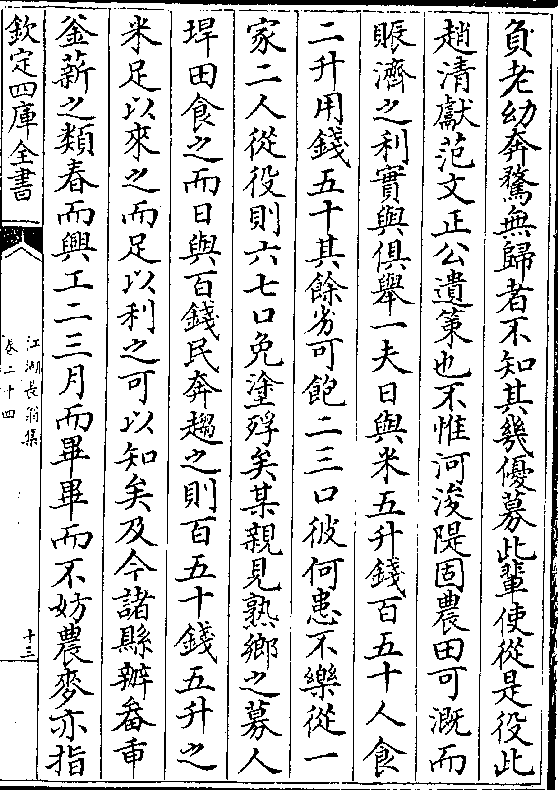 負老幼奔騖無歸者不知其幾優募此輩使從是役此
趙清獻范文正公遺策也不惟河浚隄固農田可溉而
賑濟之利實與俱舉一夫日與米五升錢百五十人食
二升用錢五十其餘劣可飽二三口彼何患不樂從一
家二人從役則六七口免塗殍矣某親見熟鄉之募人
埤田食之而日與百錢民奔趨之則百五十錢五升之
米足以來之而足以利之可以知矣及今諸縣辦畚臿
釜薪之類春而興工二三月而畢畢而不妨農麥亦指
欽定四庫全書
江湖長翁集
卷二十四
十三